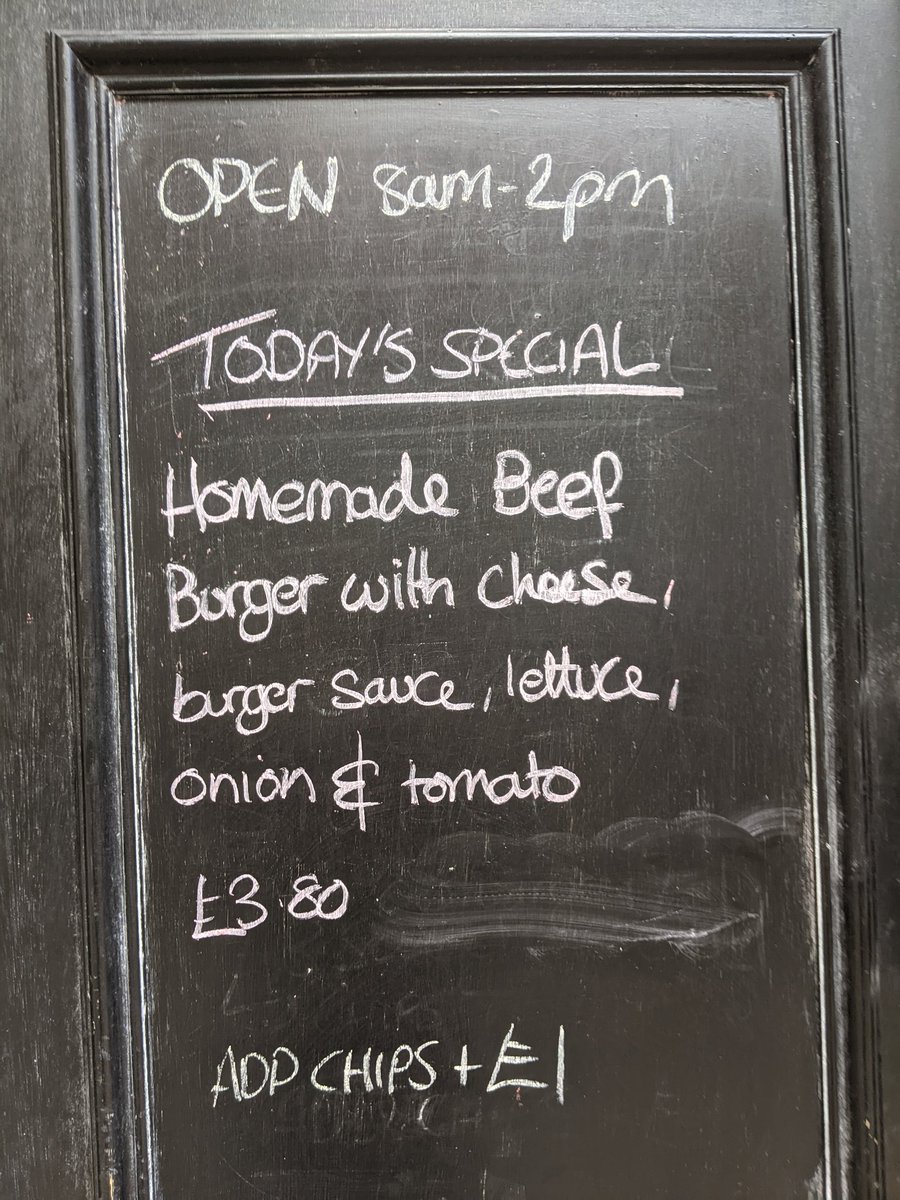 OPEN 8am-2pm
TODAY'S SPECIAL
Homemade Beef
Burger with cheese,
burger sauce, lettuce,
onion & tomato
£3.80
ADD CHIPS + £1